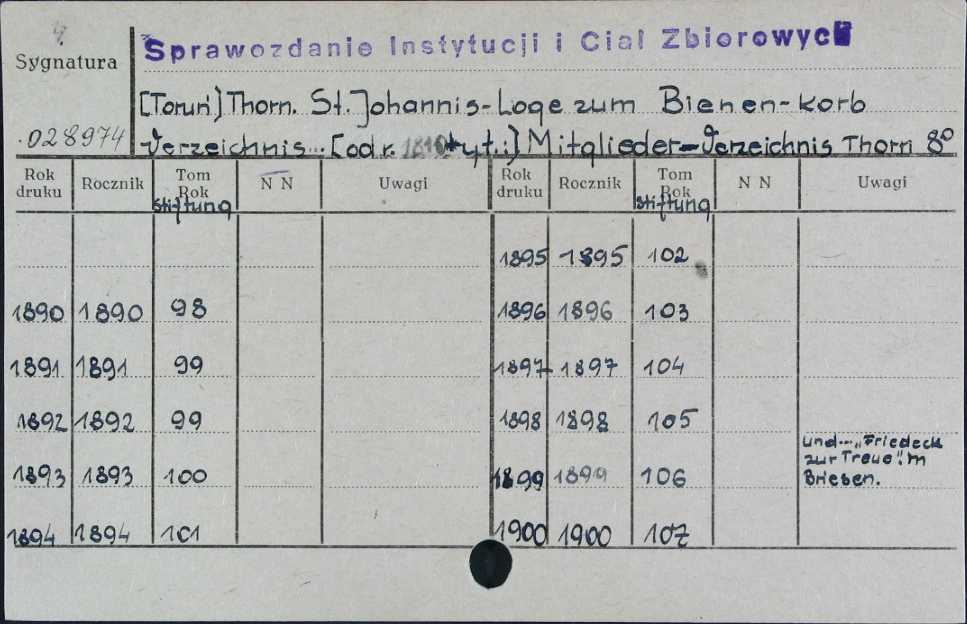 4.
Sprawozdanie Instytucji i Ciał Zbiorowych
Sygnatura
[Toruń] Thorn. St. Johannis-Loge zum Bienen-korb
028974
Verzeichnis... [od r. 1810 tyt.:] Mitglieder-Verzeichnis Thorn 8°
Rok druku Rocznik Tom Rok N N Uwagi Rok druku Rocznik Tom Rok N N Uwagi
stiftung stiftung
1895 1895 102
1890 1890 98 1896 1896 103
1891 1891 99 1897 1897 104
1892 1892 99 1898 1898 105
und... "Friedeck
zur Treue" in
1893 1893 100 1899 1899 106 Briesen.
1894 1894 101 1900 1900 107